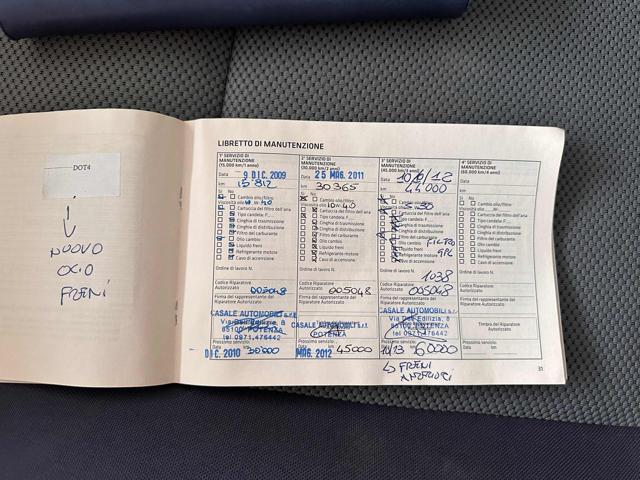 DOT4
NUOVO
OCIO
FRENI
LIBRETTO DI MANUTENZIONE
1° SERVIZIO DI
MANUTENZIONE
(15.000 km/1 anno)
Data 9 DIC. 2009
km 15 812
Si No
Cambio olio/filtro
Viscosità olio
Cartuccia del filtro dell'aria
Tipo candela: F
Cinghia di trasmissione
Cinghia di distribuzione
Filtro del carburante
Olio cambio
Liquido freni
Refrigerante motore
Cavo di accensione
Ordine di lavoro N.
Codice Riparatore
Autorizzato 005048
Firma del rappresentante del
Riparatore Autorizzato
CASALE AUTOMOBILI s.r.l.
Via Dell'Edilizia, 8
85100 POTENZA
tel 0971.476442
Prossimo servizio
DIC. 2010 30000
2° SERVIZIO DI
MANUTENZIONE
(30.000 km/2 anni)
Data 25 MAG. 2011
km 30365
Si No
Cambio olio/filtro
Viscosità olio 10W40
Cartuccia del filtro dell'aria
Tipo candela: F
Cinghia di trasmissione
Cinghia di distribuzione
Filtro del carburante
Olio cambio
Liquido freni
Refrigerante motore
Cavo di accensione
Ordine di lavoro N.
Codice Riparatore
Autorizzato 005048
Firma del rappresentante del
Riparatore Autorizzato
CASALE AUTOMOBILI s.r.l.
POTENZA
Prossimo servizio
MAG. 2012 45000
3° SERVIZIO DI
MANUTENZIONE
(45.000 km/3 anni)
Data
km 44000
Si No
Cambio olio/filtro
Viscosità olio
Cartuccia del filtro dell'aria
Tipo candela: F
Cinghia di trasmissione
Cinghia di distribuzione
Filtro del carburante
Olio cambio FILTRO
Liquido freni
Refrigerante motore GPL
Cavo di accensione
Ordine di lavoro N.
1038
Codice Riparatore
Autorizzato 005048
Firma del rappresentante del
Riparatore Autorizzato
CASALE AUTOMOBILI s.r.l.
Via Dell'Edilizia, 8
85100 POTENZA
tel 0971.476442
Prossimo servizio
10/13 60000
FRENI
ANTERIORI
4° SERVIZIO DI
MANUTENZIONE
(60.000 km/4 anni)
Data
km
Si No
Cambio olio/filtro
Viscosità olio
Cartuccia del filtro dell'aria
Tipo candela: F
Cinghia di trasmissione
Cinghia di distribuzione
Filtro del carburante
Olio cambio
Liquido freni
Refrigerante motore
Cavo di accensione
Ordine di lavoro N.
Codice Riparatore
Autorizzato
Firma del rappresentante del
Riparatore Autorizzato
Timbro del Riparatore
Autorizzato
Prossimo servizio
Data km
31